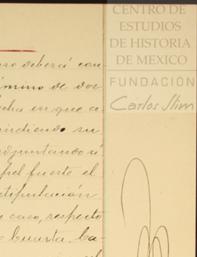 CENTRO DE
ESTUDIOS
DE HISTORIA
DE MEXICO
FUNDACIÓN
Carlos Slim
deberá con
mino de dos
cha en que
indiendo su
adjuntando
el fuerte el
estipulación
caso, respecto
Cuenta